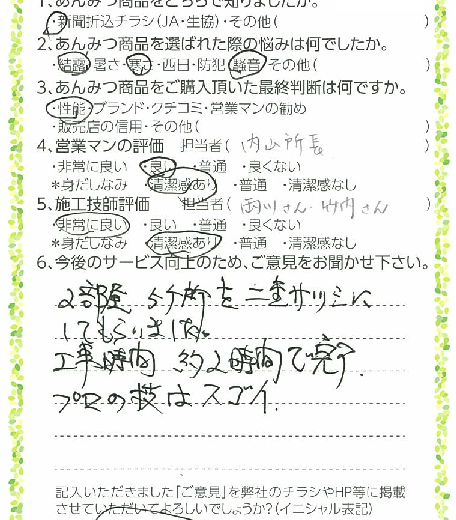 1、あんみつ商品をどちらで知りましたか。
・新聞折込チラシ(JA・生協)・その他( )
2、あんみつ商品を選ばれた際の悩みは何でしたか。
・結露・暑さ・寒さ・西日・防犯・騒音・その他( )
3、あんみつ商品をご購入頂いた最終判断は何ですか。
・性能・ブランド・クチコミ・営業マンの勧め
・販売店の信用・その他( )
4、営業マンの評価 担当者( 内山所長 )
・非常に良い ・良い ・普通 ・良くない
*身だしなみ ・清潔感あり ・普通 ・清潔感なし
5、施工技師評価 担当者( 西川さん・竹内さん )
・非常に良い ・良い ・普通 ・良くない
*身だしなみ ・清潔感あり ・普通 ・清潔感なし
6、今後のサービス向上のため、ご意見をお聞かせ下さい。
2部屋 5ヶ所を二重サッシに
してもらいました。
工事時間 約2時間で完了.
プロの技はスゴイ.
記入いただきました「ご意見」を弊社のチラシやHP等に掲載
させていただいてよろしいでしょうか?(イニシャル表記)